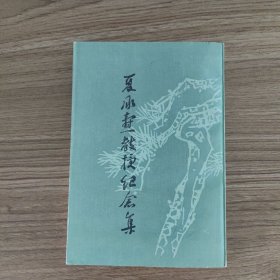 夏承焘教授纪念集